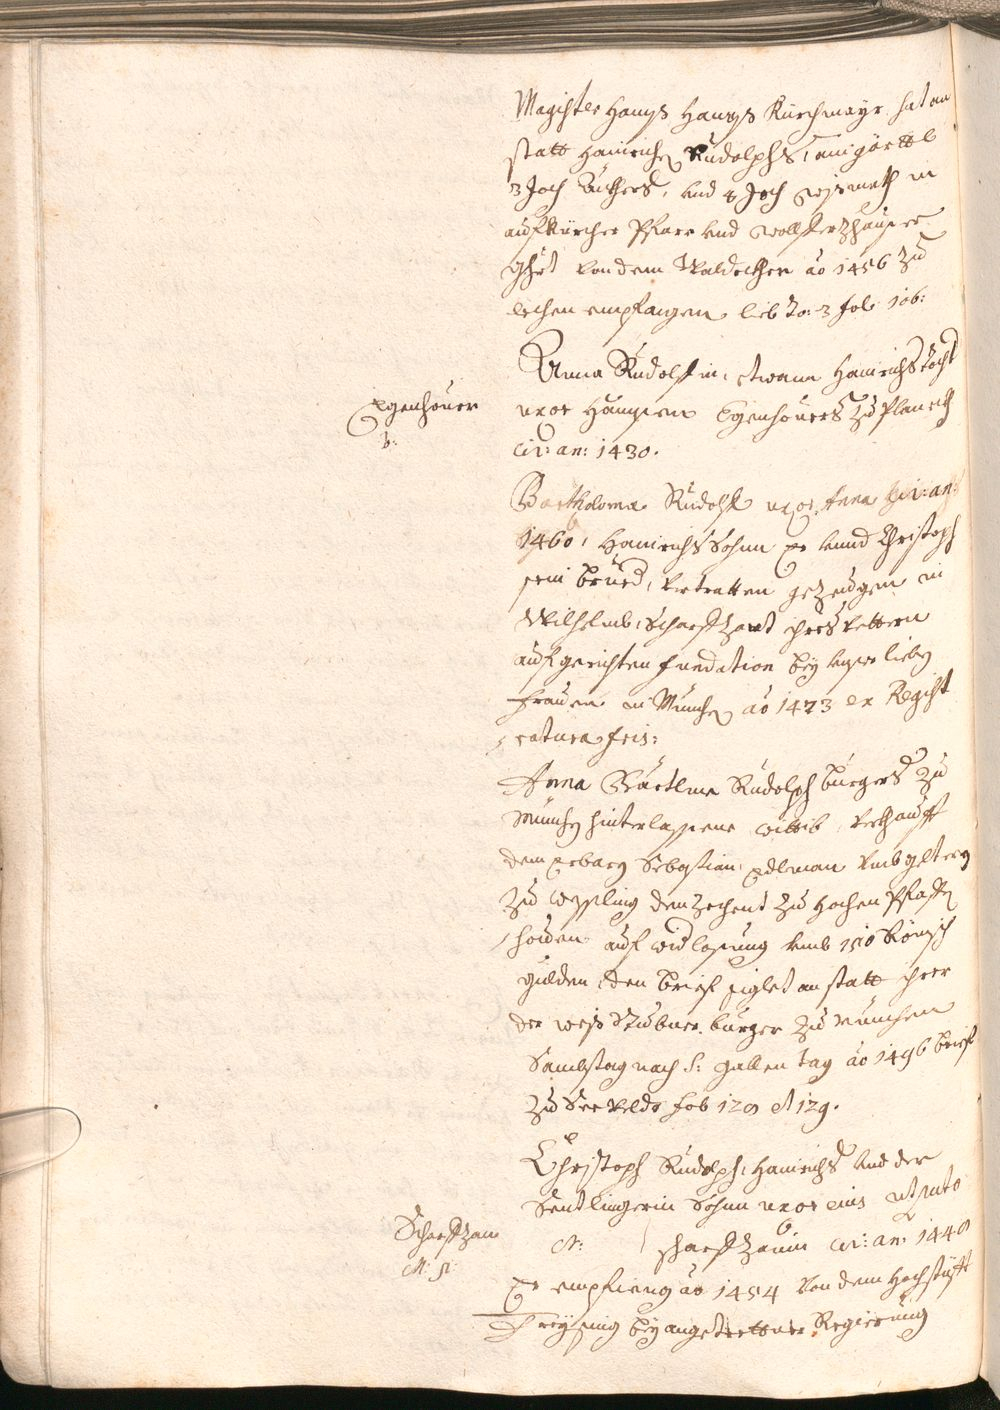 Magister Hanns Hanns Kirchmayr hat an
statt Hainrichen Rudolphs, ain gärttl
3 Joch Äckhers, und 4 Joch wißmath in
aufkürcher Pfarr und Wollfertzhauser
Ghrt von dem Waldeckher ao 1456 zu
lechen empfangen lib: 3 fol: 106:
Anna Rudolfin, etwann Hainrichs tocht
uxor Hannsen Egenhovers zu Planeth
cir: an: 1430.
Egenhover
Bartholome Rudolf uxor Anna cir: an:
1460, Hainrichs Sohnn er unnd Christoph
sein brued, vertratten gezeugen in
Wilhelmb Scharfftzant ihres vettern
aufgerichten fundation bey unser lieben
Frauen in München ao 1473 ex Regist
ratura fris:
Anna Bärtlme Rudolph burgers zu
München hinterlassene wittib, verkhaufft
dem erbarn Sebastian Edlman umbgelter
zu Wessling den zechent zu Hochen Pfaffen
hoven auf widlosung umb 150 Reinisch
gulden, den brief siglet an statt ihrer
der weiss Stubner burger zu München
Sambstag nach S: Gallen tag ao 1496 brief
zu Seeveldt fol 128 et 129.
Christoph Rudolph, Hainrichs und der
Sentlingerin Sohnn uxor eius ut puto
N: Scharfftzanin cir: an: 1440
Scharfftzan
Er empfieng ao 1454 von dem Hochstüfft
Freysing bey angetrettner Regierung